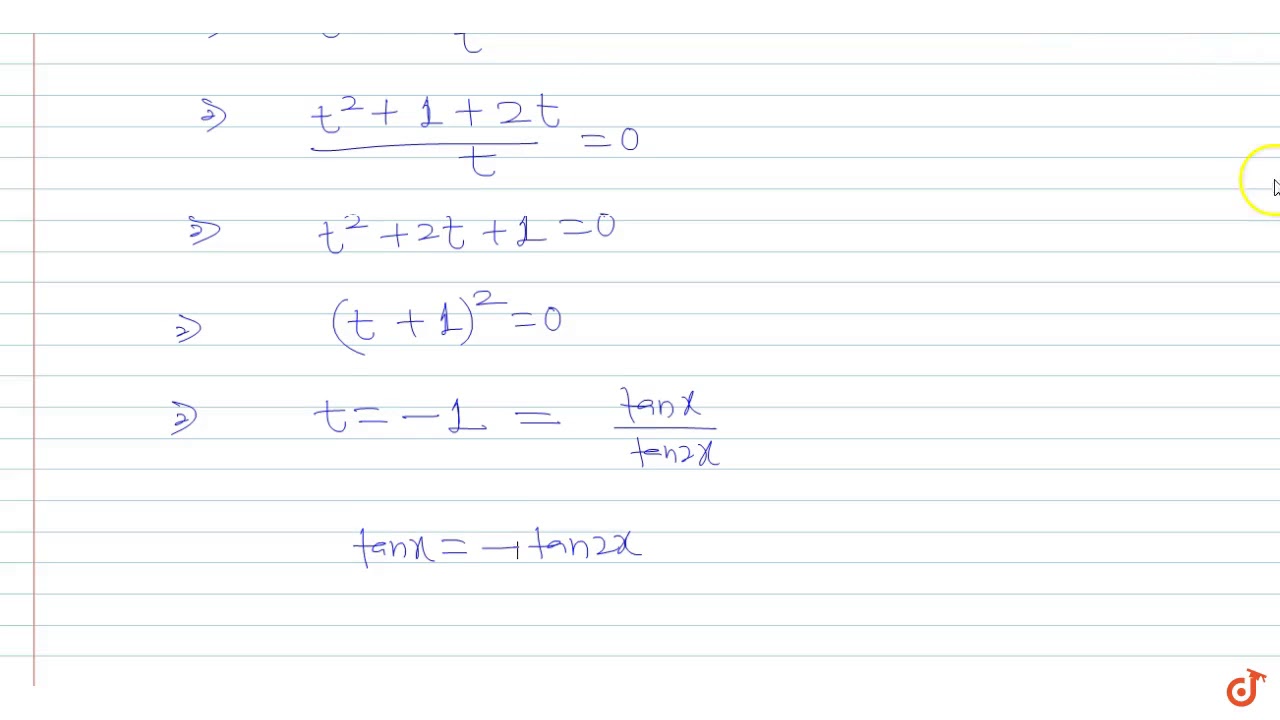 ⇒ t² + 1 + 2t
t = 0
⇒ t² + 2t + 1 = 0
⇒ (t + 1)² = 0
⇒ t = -1 = tanx
tan2x
tanx = - tan2x